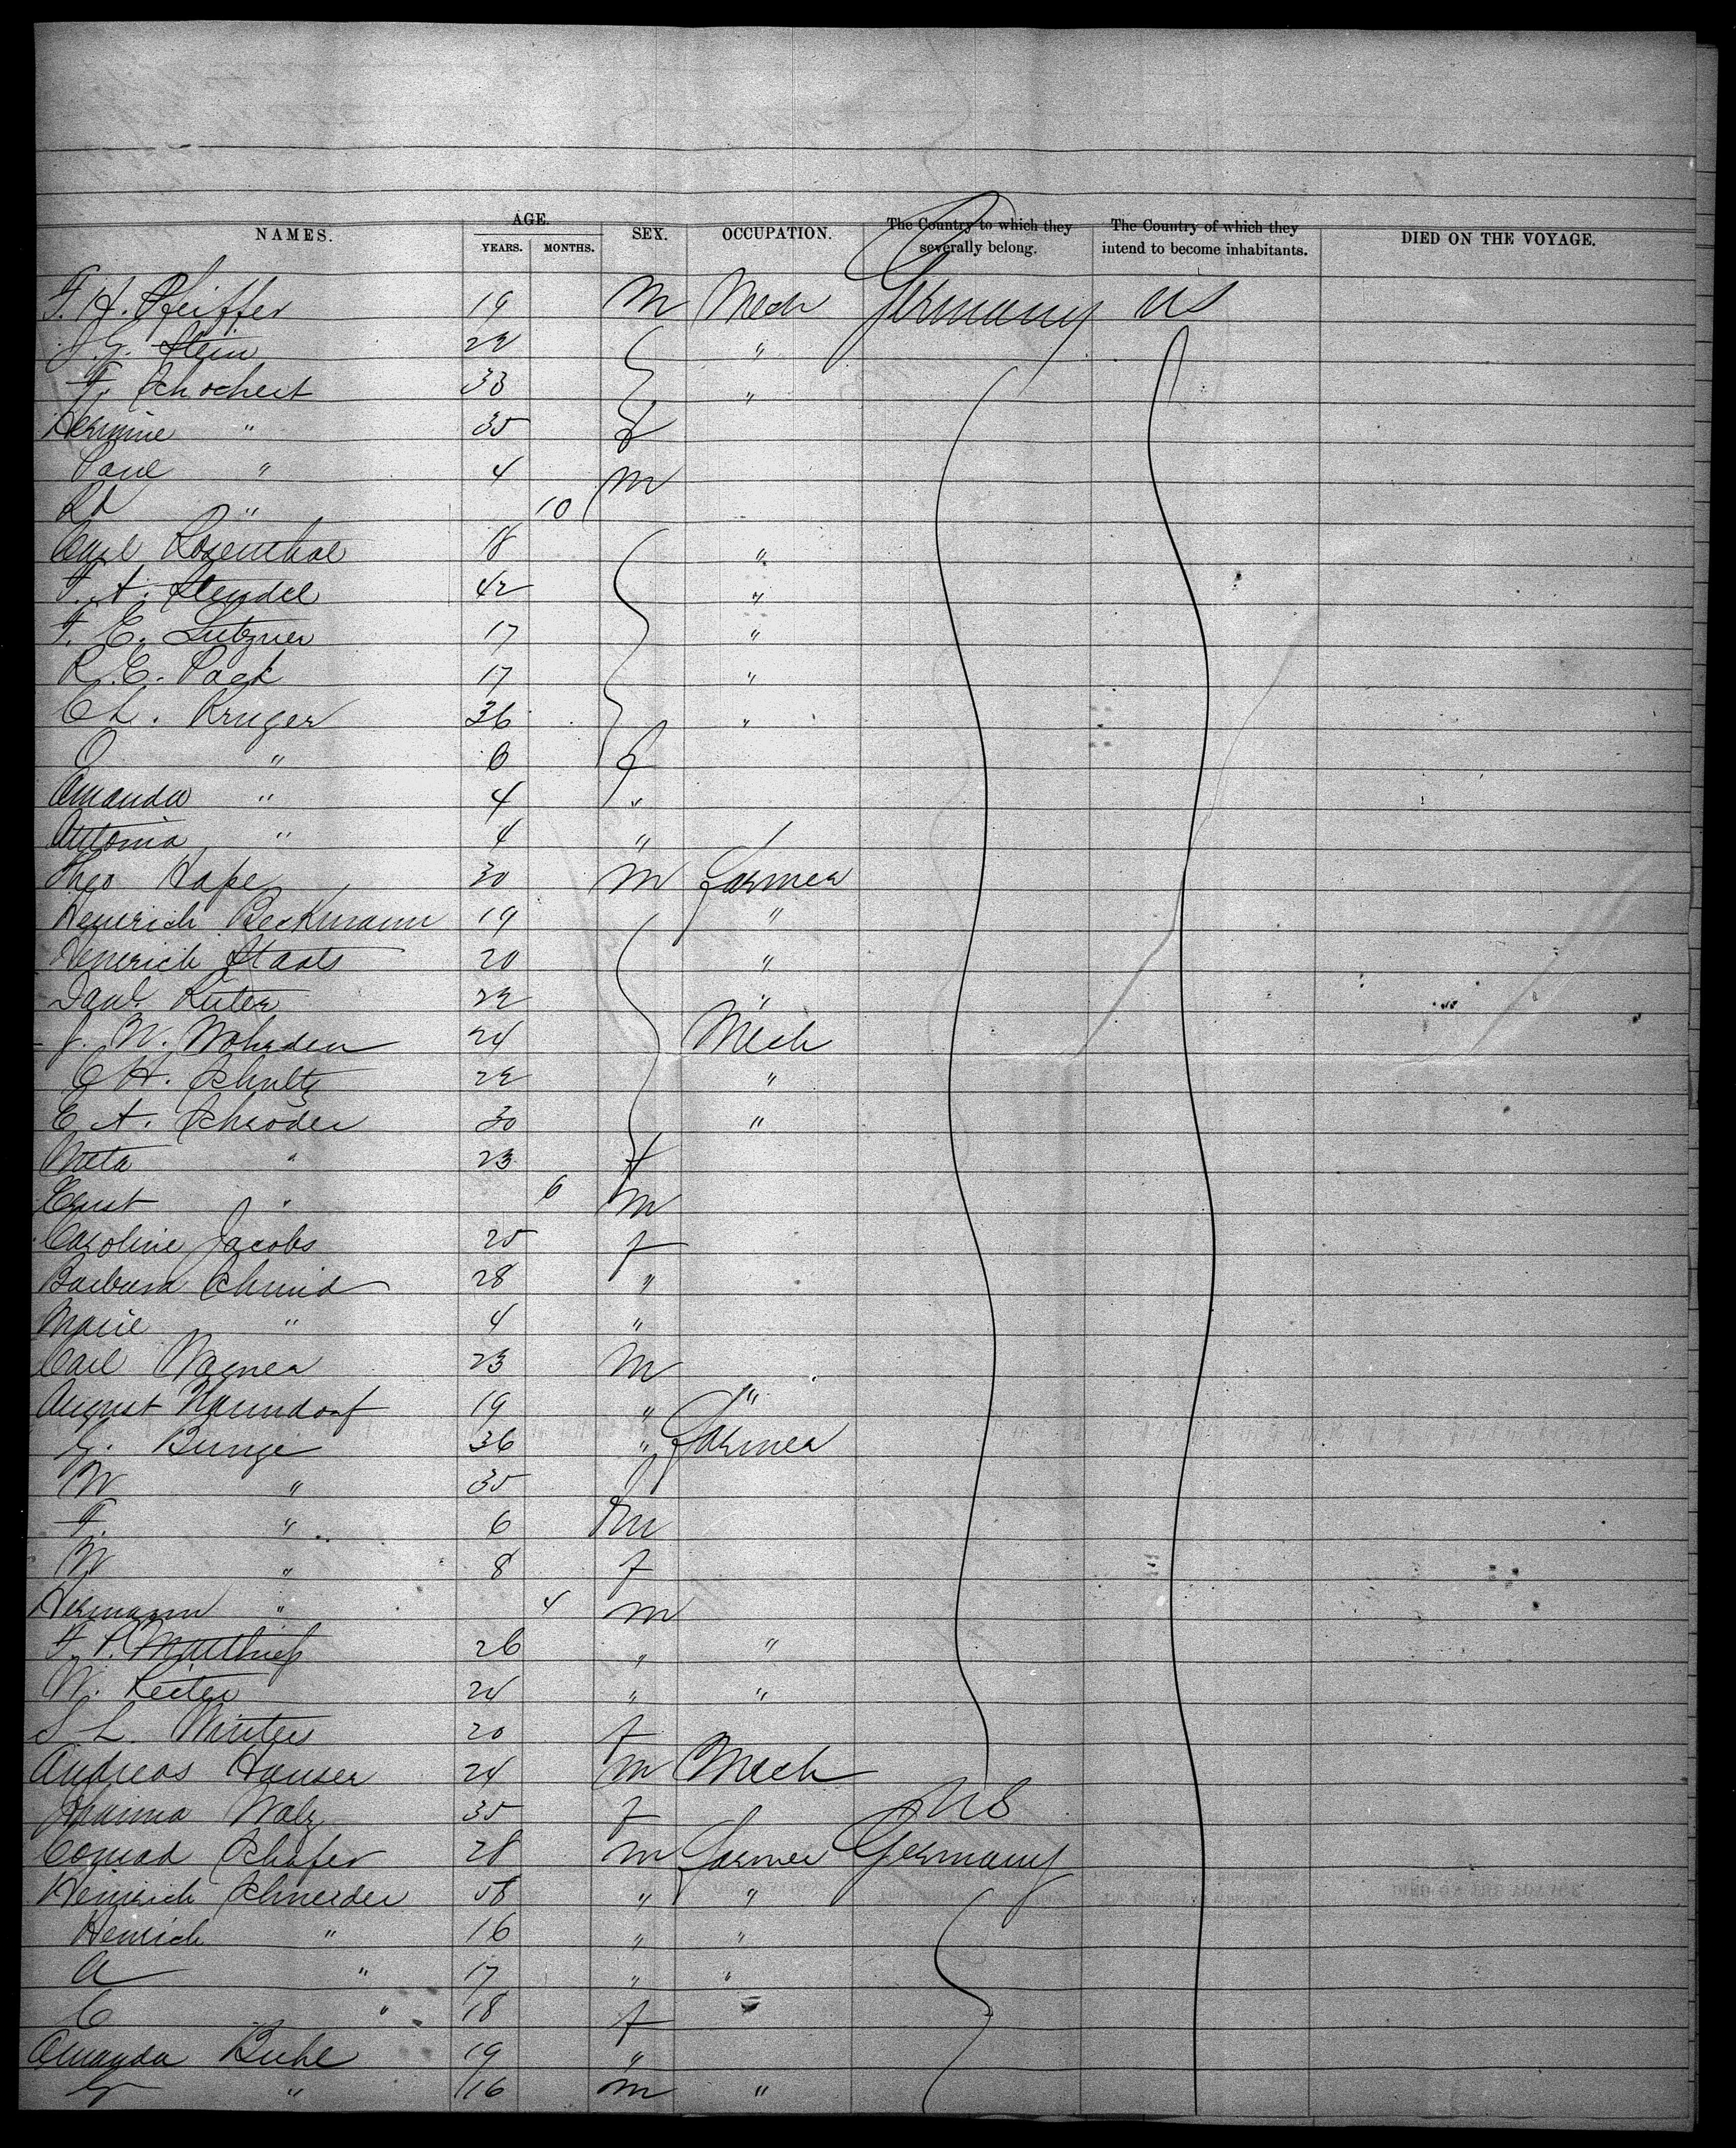 NAMES. AGE. YEARS. MONTHS. SEX. OCCUPATION. The Country to which they severally belong. The Country of which they intend to become inhabitants. DIED ON THE VOYAGE.
F. H. Pfeiffer 19 M Mech Germany US
J. G. Stein 22 "
F. Schochert 33 "
Hermine " 35 f
Paul " 4 m
Rd " 10
Carl Rosenthal 18 "
F. A. Stendel 42 "
F. E. Lutzner 17 "
R. E. Pack 17 "
Ch. Kruger 36 "
O " 6 f
Amanda " 4 "
Antonia " 4 "
Theo Hape 30 M Farmer
Heinrich Beckmann 19 "
Heinrich Staats 20 "
Danl Ruter 22 "
J. W. Wohrden 24 Mech
C H. Schultz 22 "
E A. Schroder 30 "
Meta " 23 f
Ernst " 6 m
Caroline Jacobs 25 f
Barbara Schmid 28 "
Marie " 4 "
Carl Wagner 23 M
August Naundorf 19 " "
G. Bunge 36 " Farmer
W " 35 f
F. " 6 m
W " 8 f
Hermann " 4 m
F. P. 26 " "
W. Reiter 24 " "
S L. Winter 20 f
Andreas Hauser 24 m Mech
Johanna Walz 35 f US
Conrad Schafer 28 m Farmer Germany
Heinrich Schneider 58 " "
Heinrich " 16 " "
A " 17 " "
C " 18 f
Amanda Buhl 19 "
G " 16 m "